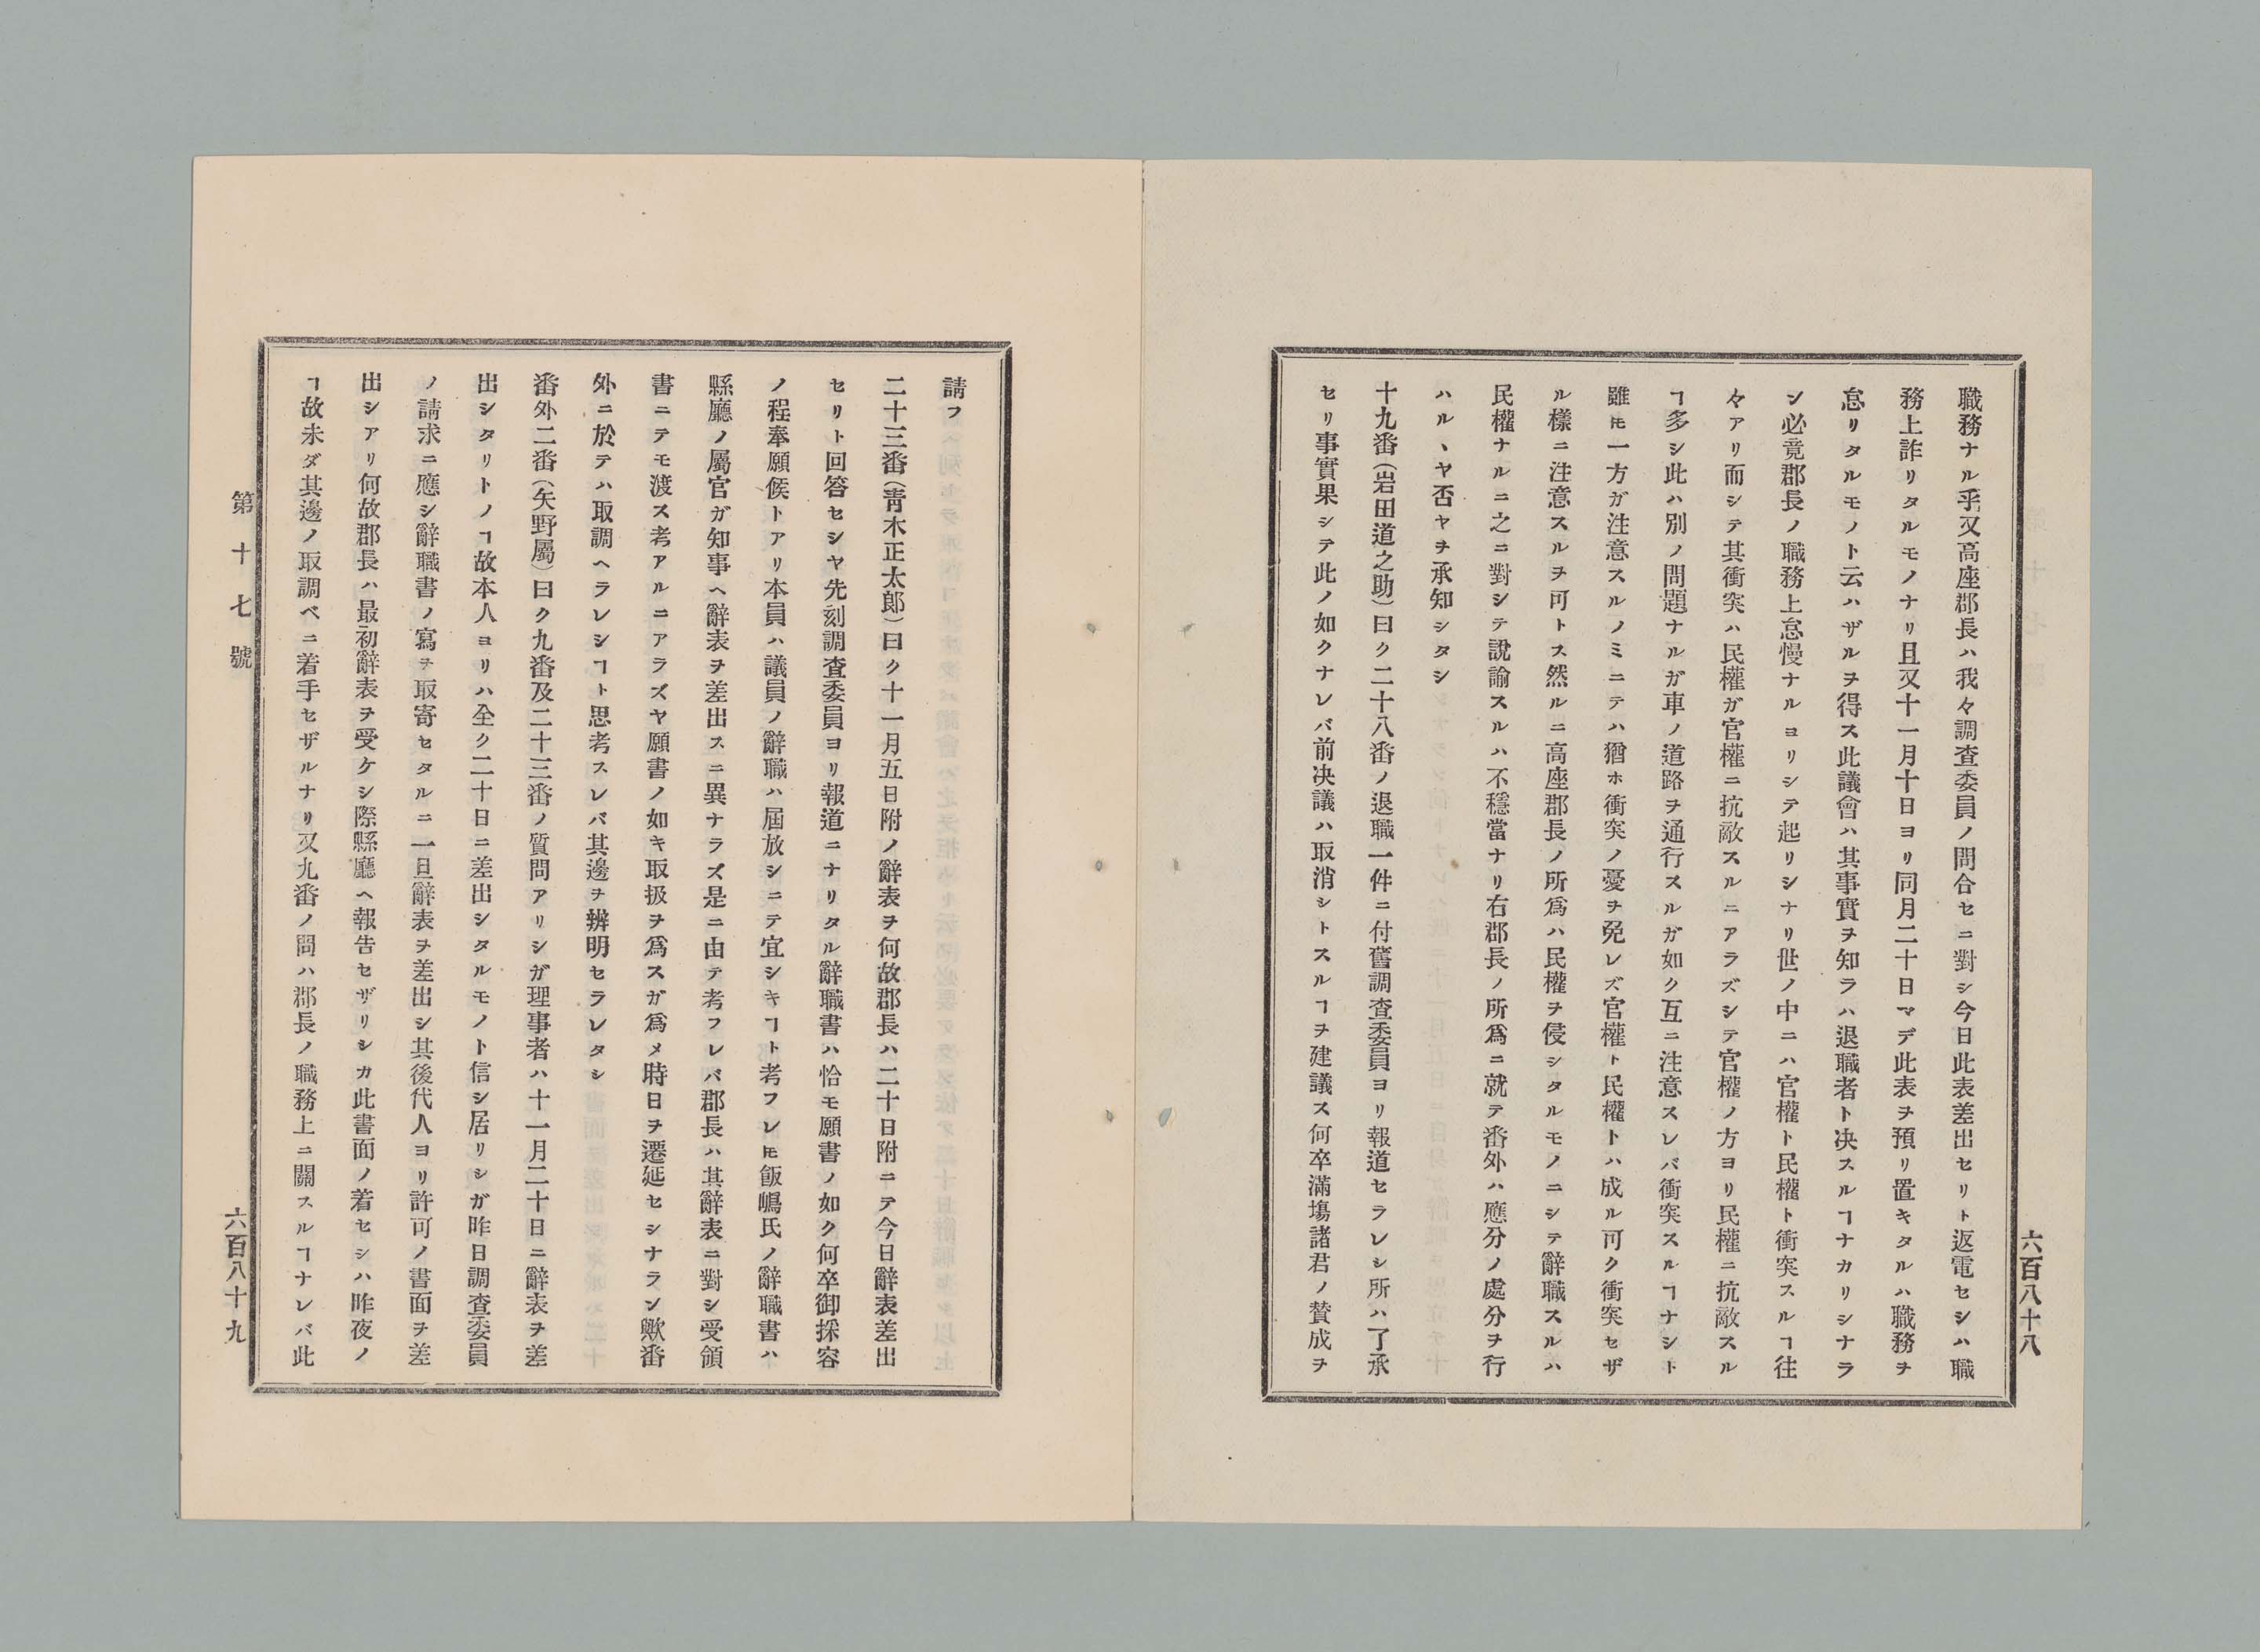 六百八十八
職務ナル乎又高座郡長ハ我々調査委員ノ問合セニ對シ今日此表差出セリト返電セシハ職
務上詐リタルモノナリ且又十一月十日ヨリ同月二十日マデ此表ヲ預リ置キタルハ職務ヲ
怠リタルモノト云ハザルヲ得ス此議會ハ其事實ヲ知ラハ退職者ト决スルヿナカリシナラ
ン必竟郡長ノ職務上怠慢ナルヨリシテ起リシナリ世ノ中ニハ官權ト民權ト衝突スルヿ往
々アリ而シテ其衝突ハ民權ガ官權ニ抗敵スルニアラズシテ官權ノ方ヨリ民權ニ抗敵スル
ヿ多シ此ハ別ノ問題ナルガ車ノ道路ヲ通行スルガ如ク互ニ注意スレバ衝突スルヿナシト
雖𪜈一方ガ注意スルノミニテハ猶ホ衝突ノ憂ヲ免レズ官權ト民權トハ成ル可ク衝突セザ
ル樣ニ注意スルヲ可トス然ルニ高座郡長ノ所爲ハ民權ヲ侵シタルモノニシテ辭職スルハ
民權ナルニ之ニ對シテ說諭スルハ不穩當ナリ右郡長ノ所爲ニ就テ番外ハ應分ノ處分ヲ行
ハルヽヤ否ヤヲ承知シタシ
十九番（岩田道之助）曰ク二十八番ノ退職一件ニ付舊調査委員ヨリ報道セラレシ所ハ了承
セリ事實果シテ此ノ如クナレバ前决議ハ取消シトスルヿヲ建議ス何卒滿塲諸君ノ賛成ヲ
請フ
二十三番（靑木正太郎）曰ク十一月五日附ノ辭表ヲ何故郡長ハ二十日附ニテ今日辭表差出
セリト回答セシヤ先刻調査委員ヨリ報道ニナリタル辭職書ハ恰モ願書ノ如ク何卒御採容
ノ程奉願候トアリ本員ハ議員ノ辭職ハ屆放シニテ宜シキヿト考フレ𪜈飯嶋氏ノ辭職書ハ
縣廳ノ屬官ガ知事ヘ辭表ヲ差出スニ異ナラズ是ニ由テ考フレバ郡長ハ其辭表ニ對シ受領
書ニテモ渡ス考アルニアラズヤ願書ノ如キ取扱ヲ爲スガ爲メ時日ヲ遷延セシナラン歟番
外ニ於テハ取調ヘラレシヿト思考スレバ其邊ヲ辨明セラレタシ
番外二番（矢野屬）曰ク九番及二十三番ノ質問アリシガ理事者ハ十一月二十日ニ辭表ヲ差
出シタリトノヿ故本人ヨリハ全ク二十日ニ差出シタルモノト信シ居リシガ昨日調査委員
ノ請求ニ應シ辭職書ノ寫ヲ取寄セタルニ一旦辭表ヲ差出シ其後代人ヨリ許可ノ書面ヲ差
出シアリ何故郡長ハ最初辭表ヲ受ケシ際縣廳ヘ報告セザリシカ此書面ノ着セシハ昨夜ノ
ヿ故未ダ其邊ノ取調ベニ着手セザルナリ又九番ノ問ハ郡長ノ職務上ニ關スルヿナレバ此
第十七號
六百八十九